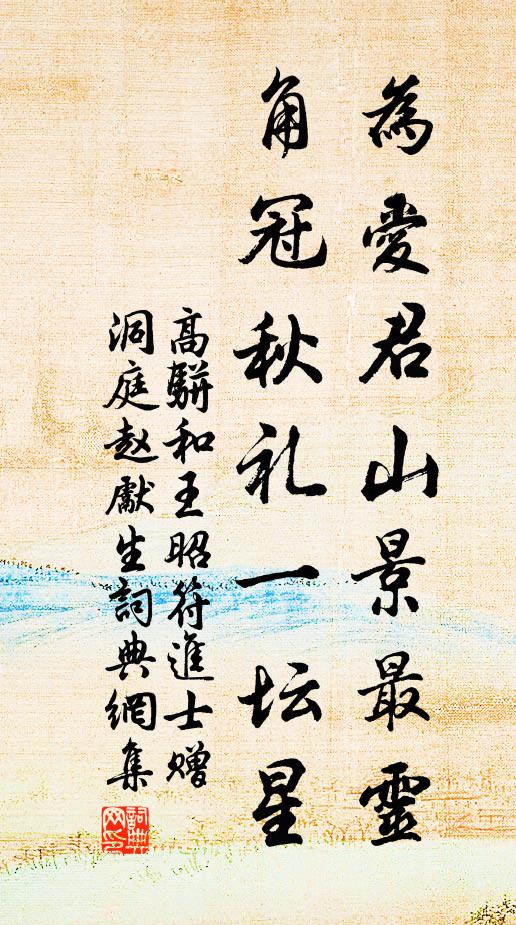 為愛君山景最靈
角冠秋礼一坛星
高駢和王昭符進士赠
洞庭赵獻生詞典網集
詞典网印